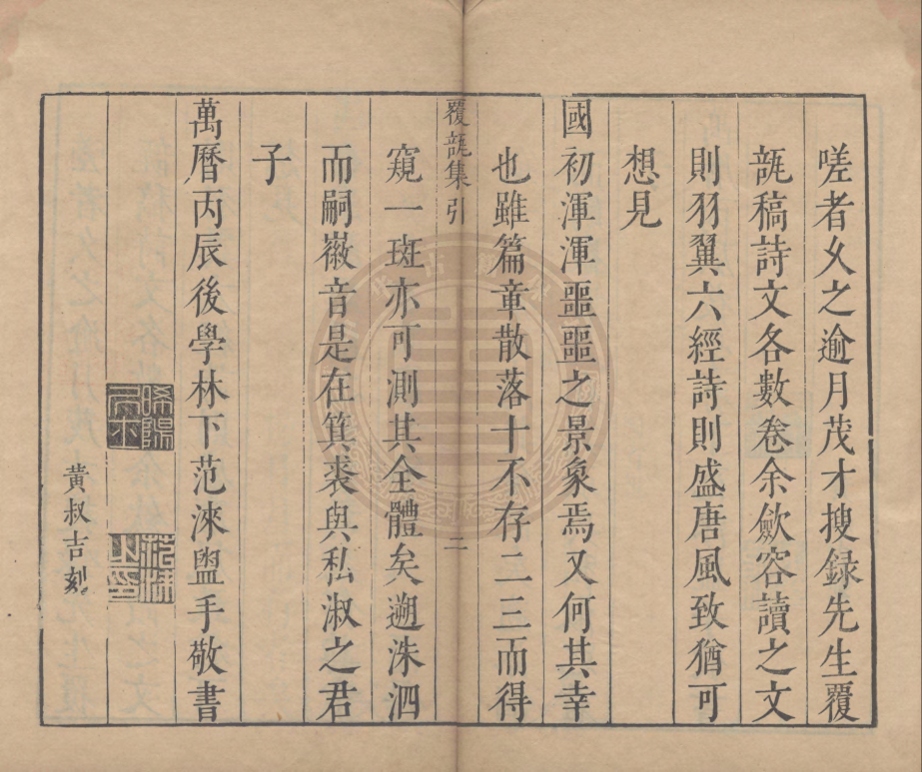 嗟者久之逾月茂才搜録先生覆
瓿稿詩文各數卷余歛容讀之文
則羽翼六經詩則盛唐風致猶可
想見
國初渾渾噩噩之景象焉又何其幸
也雖篇章散落十不存二三而得
覆瓿集引
二
窺一斑亦可測其全體矣遡洙泗
而嗣徽音是在箕裘與私淑之君
子
萬曆丙辰後學林下范淶盥手敬書
范淶之印
黃叔吉刻